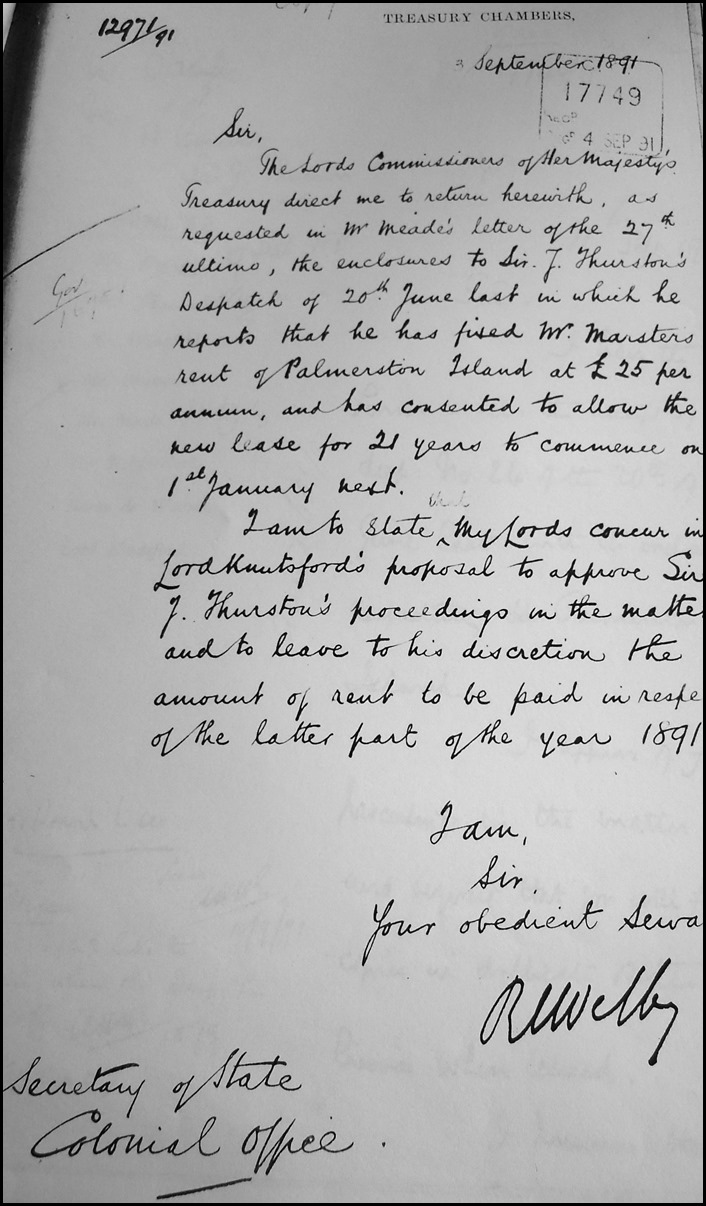 12971/91
TREASURY CHAMBERS,
September 1891
17749
4 SEP 91
Sir,
The Lords Commissioners of Her Majesty's
Treasury direct me to return herewith, as
requested in Mr Meade's letter of the 27th
ultimo, the enclosures to Sir J. Thurston's
Despatch of 20th June last in which he
reports that he has fixed Mr. Marsters
rent of Palmerston Island at £25 per
annum, and has consented to allow the
new lease for 21 years to commence on
1st January next.
that
I am to state ^ My Lords concur in
Lord Knutsford's proposal to approve Sir
J. Thurston's proceedings in the matte
and to leave to his discretion the
amount of rent to be paid in respe
of the latter part of the year 1891
I am,
Sir,
Your obedient Serva
REWelby
Secretary of State
Colonial Office.